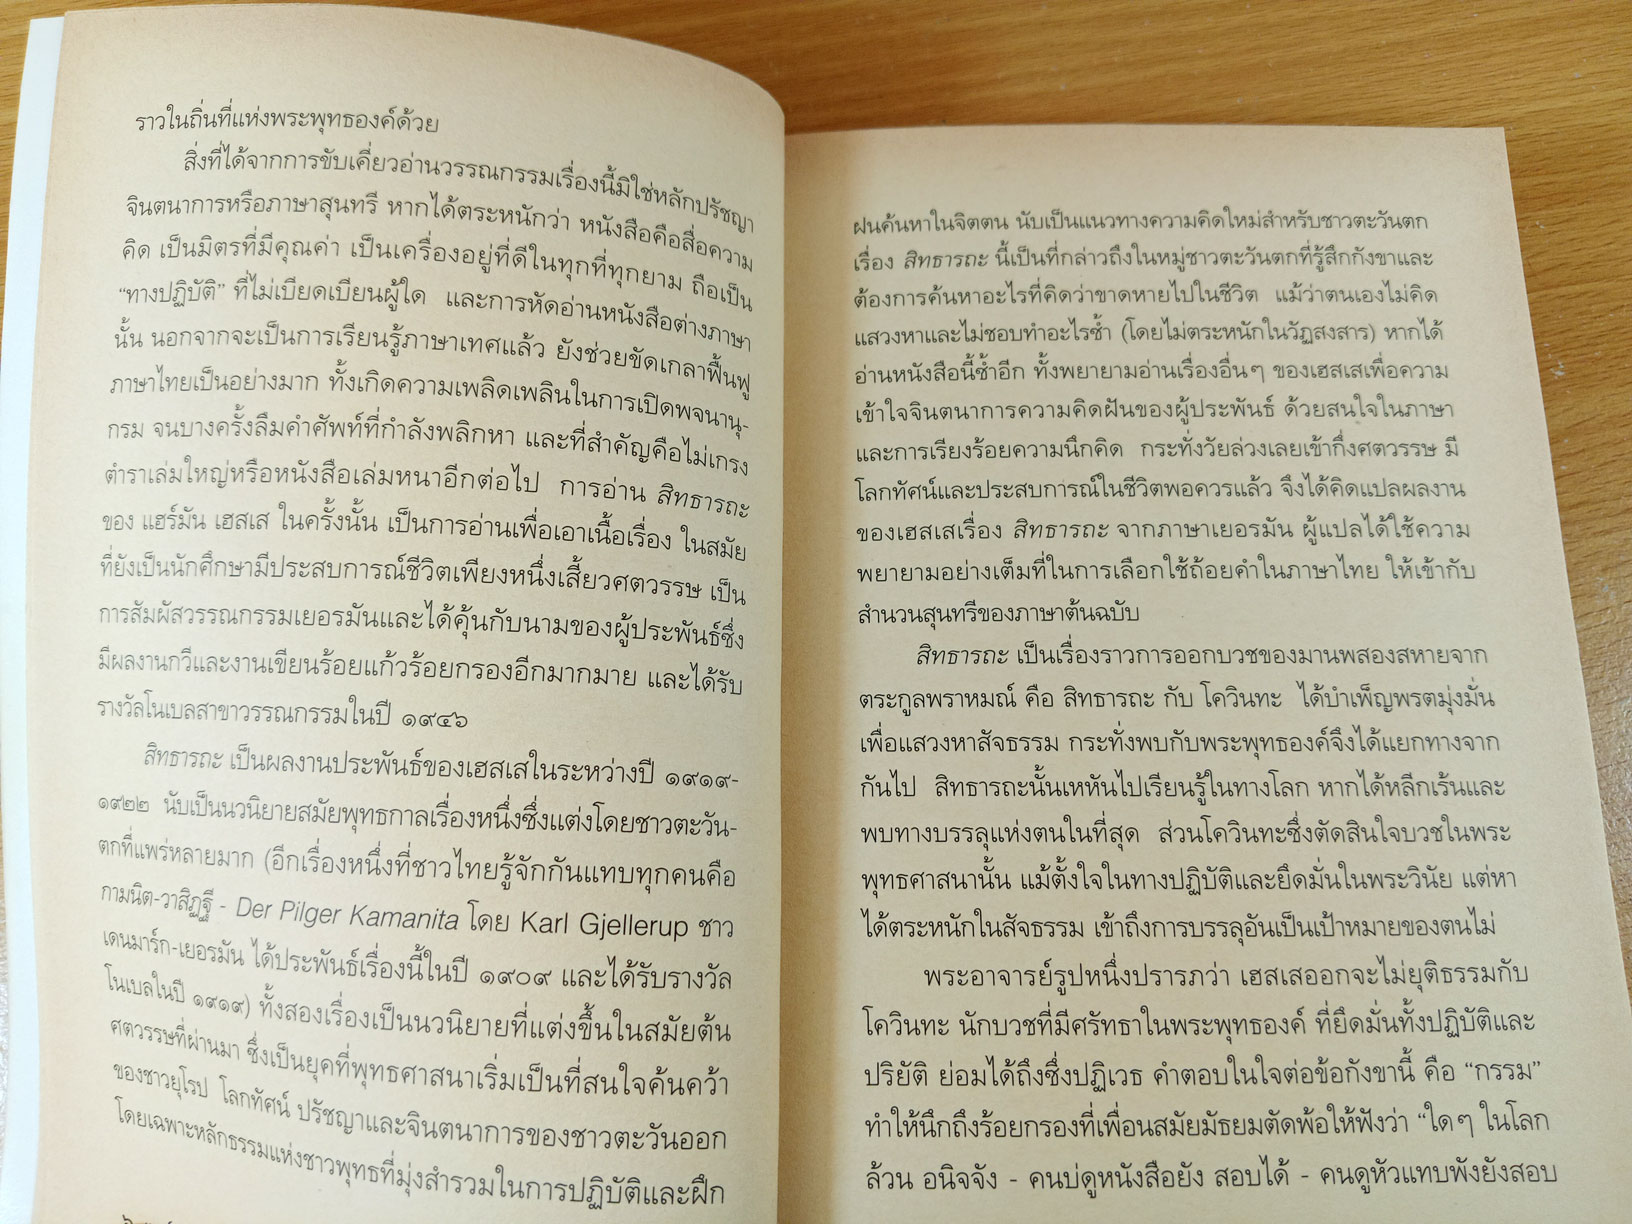 ราวในถิ่นที่แห่งพระพุทธองค์ด้วย
สิ่งที่ได้จากการขับเคี่ยวอ่านวรรณกรรมเรื่องนี้มิใช่หลักปรัชญา
จินตนาการหรือภาษาสุนทรี หากได้ตระหนักว่า หนังสือคือสื่อความ
คิด เป็นมิตรที่มีคุณค่า เป็นเครื่องอยู่ที่ดีในทุกที่ทุกยาม ถือเป็น
“ทางปฏิบัติ” ที่ไม่เบียดเบียนผู้ใด และการหัดอ่านหนังสือต่างภาษา
นั้น นอกจากจะเป็นการเรียนรู้ภาษาเทศแล้ว ยังช่วยขัดเกลาฟื้นฟู
ภาษาไทยเป็นอย่างมาก ทั้งเกิดความเพลิดเพลินในการเปิดพจนานุ-
กรม จนบางครั้งลืมคำศัพท์ที่กำลังพลิกหา และที่สำคัญคือไม่เกรง
ตำราเล่มใหญ่หรือหนังสือเล่มหนาอีกต่อไป การอ่าน สิทธารถะ
ของ แฮร์มัน เฮสเส ในครั้งนั้น เป็นการอ่านเพื่อเอาเนื้อเรื่อง ในสมัย
ที่ยังเป็นนักศึกษามีประสบการณ์ชีวิตเพียงหนึ่งเสี้ยวศตวรรษ เป็น
การสัมผัสวรรณกรรมเยอรมันและได้คุ้นกับนามของผู้ประพันธ์ซึ่ง
มีผลงานกวีและงานเขียนร้อยแก้วร้อยกรองอีกมากมาย และได้รับ
รางวัลโนเบลสาขาวรรณกรรมในปี ๑๙๔๖
สิทธารถะ เป็นผลงานประพันธ์ของเฮสเสในระหว่างปี ๑๙๑๙-
๑๙๒๒ นับเป็นนวนิยายสมัยพุทธกาลเรื่องหนึ่งซึ่งแต่งโดยชาวตะวัน-
ตกที่แพร่หลายมาก (อีกเรื่องหนึ่งที่ชาวไทยรู้จักกันแทบทุกคนคือ
กามนิต-วาสิฏฐี - Der Pilger Kamanita โดย Karl Gjellerup ชาว
เดนมาร์ก-เยอรมัน ได้ประพันธ์เรื่องนี้ในปี ๑๙๐๙ และได้รับรางวัล
โนเบลในปี ๑๙๑๙) ทั้งสองเรื่องเป็นนวนิยายที่แต่งขึ้นในสมัยต้น
ศตวรรษที่ผ่านมา ซึ่งเป็นยุคที่พุทธศาสนาเริ่มเป็นที่สนใจค้นคว้า
ของชาวยุโรป โลกทัศน์ ปรัชญาและจินตนาการของชาวตะวันออก
โดยเฉพาะหลักธรรมแห่งชาวพุทธที่มุ่งสำรวมในการปฏิบัติและฝึก
ฝนค้นหาในจิตตน นับเป็นแนวทางความคิดใหม่สำหรับชาวตะวันตก
เรื่อง สิทธารถะ นี้เป็นที่กล่าวถึงในหมู่ชาวตะวันตกที่รู้สึกกังขาและ
ต้องการค้นหาอะไรที่คิดว่าขาดหายไปในชีวิต แม้ว่าตนเองไม่คิด
แสวงหาและไม่ชอบทำอะไรซ้ำ (โดยไม่ตระหนักในวัฏสงสาร) หากได้
อ่านหนังสือนี้ซ้ำอีก ทั้งพยายามอ่านเรื่องอื่นๆ ของเฮสเสเพื่อความ
เข้าใจจินตนาการความคิดฝันของผู้ประพันธ์ ด้วยสนใจในภาษา
และการเรียงร้อยความนึกคิด กระทั่งวัยล่วงเลยเข้ากึ่งศตวรรษ มี
โลกทัศน์และประสบการณ์ในชีวิตพอควรแล้ว จึงได้คิดแปลผลงาน
ของเฮสเสเรื่อง สิทธารถะ จากภาษาเยอรมัน ผู้แปลได้ใช้ความ
พยายามอย่างเต็มที่ในการเลือกใช้ถ้อยคำในภาษาไทย ให้เข้ากับ
สำนวนสุนทรีของภาษาต้นฉบับ
สิทธารถะ เป็นเรื่องราวการออกบวชของมานพสองสหายจาก
ตระกูลพราหมณ์ คือ สิทธารถะ กับ โควินทะ ได้บำเพ็ญพรตมุ่งมั่น
เพื่อแสวงหาสัจธรรม กระทั่งพบกับพระพุทธองค์จึงได้แยกทางจาก
กันไป สิทธารถะนั้นเหหันไปเรียนรู้ในทางโลก หากได้หลีกเร้นและ
พบทางบรรลุแห่งตนในที่สุด ส่วนโควินทะซึ่งตัดสินใจบวชในพระ
พุทธศาสนานั้น แม้ตั้งใจในทางปฏิบัติและยึดมั่นในพระวินัย แต่หา
ได้ตระหนักในสัจธรรม เข้าถึงการบรรลุอันเป็นเป้าหมายของตนไม่
พระอาจารย์รูปหนึ่งปรารภว่า เฮสเสออกจะไม่ยุติธรรมกับ
โควินทะ นักบวชที่มีศรัทธาในพระพุทธองค์ ที่ยึดมั่นทั้งปฏิบัติและ
ปริยัติ ย่อมได้ถึงซึ่งปฏิเวธ คำตอบในใจต่อข้อกังขานี้ คือ “กรรม”
ทำให้นึกถึงร้อยกรองที่เพื่อนสมัยมัธยมตัดพ้อให้ฟังว่า “ใดๆ ในโลก
ล้วน อนิจจัง - คนบ่ดูหนังสือยัง สอบได้ - คนดูหัวแทบพังยังสอบ